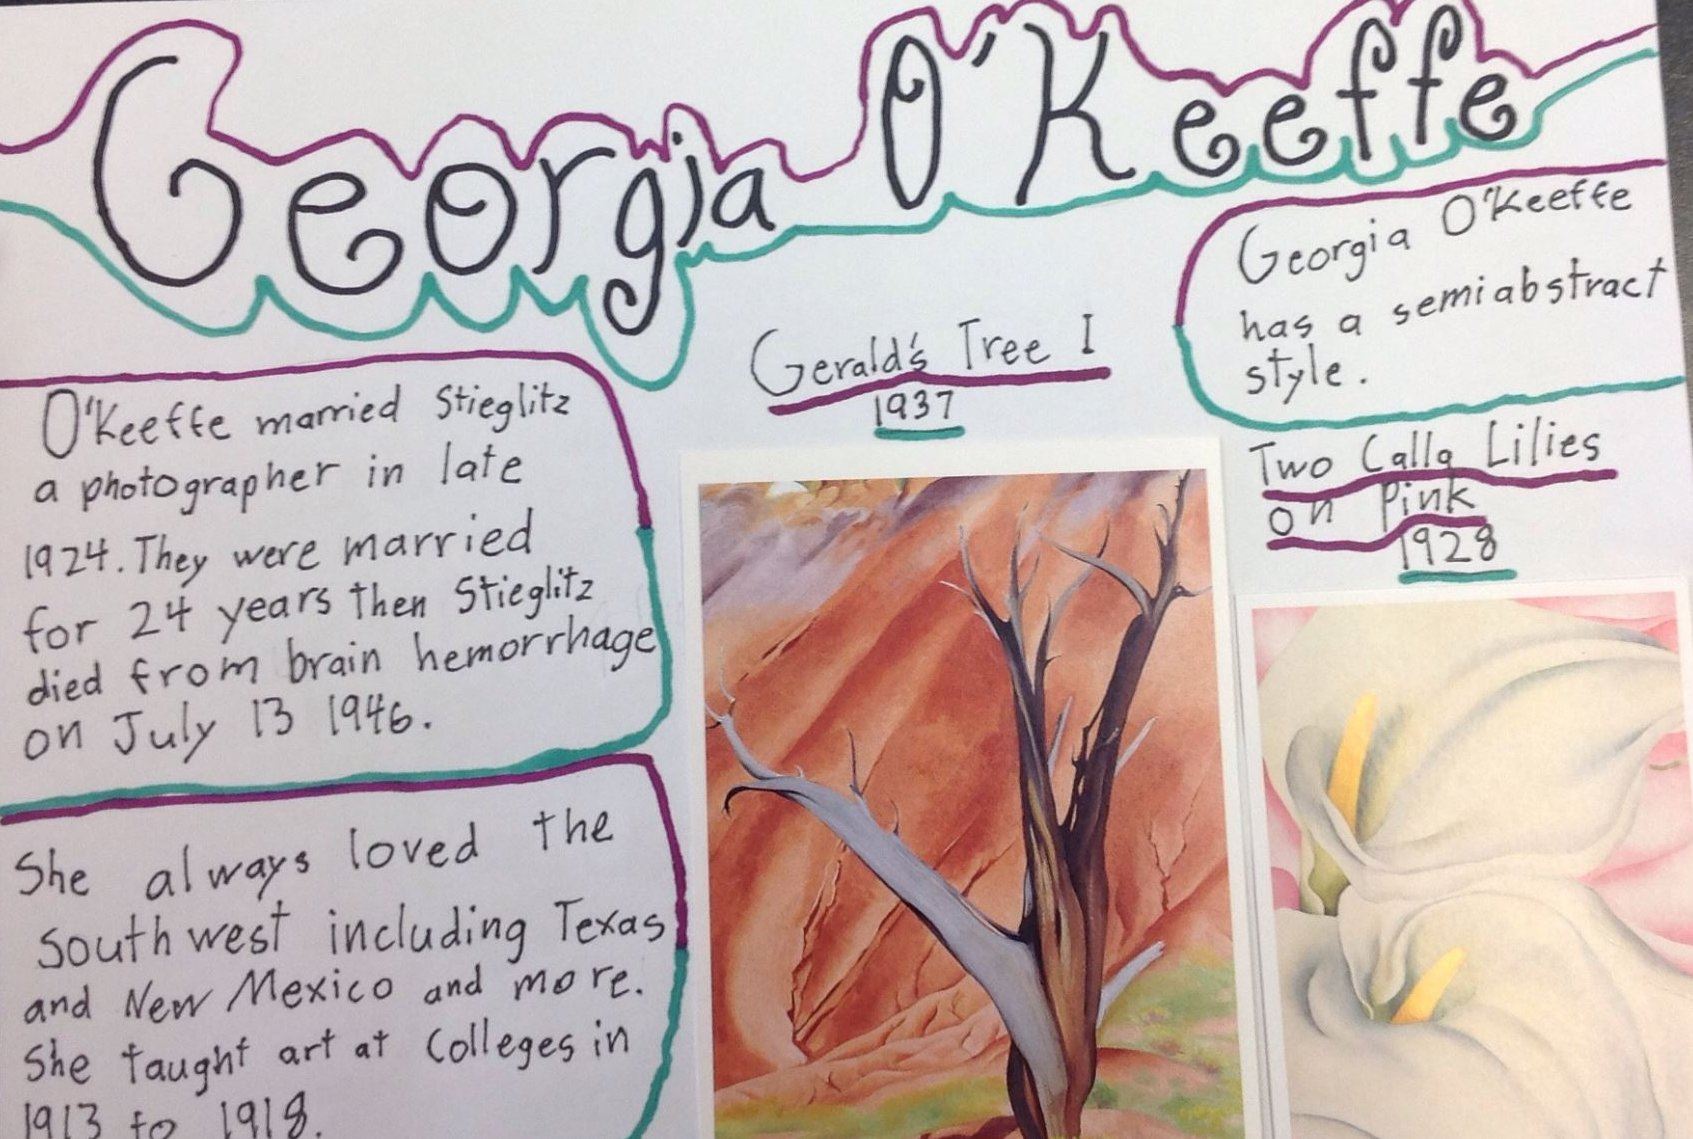 Georgia O'Keeffe
O'Keeffe married Stieglitz
a photographer in late
1924. They were married
for 24 years then Stieglitz
died from brain hemorrhage
on July 13 1946.
She always loved the
southwest including Texas
and New Mexico and more.
She taught art at Colleges in
1913 to 1918.
Gerald's Tree I
1937
Georgia O'Keeffe
has a semiabstract
style.
Two Calla Lilies
on Pink
1928